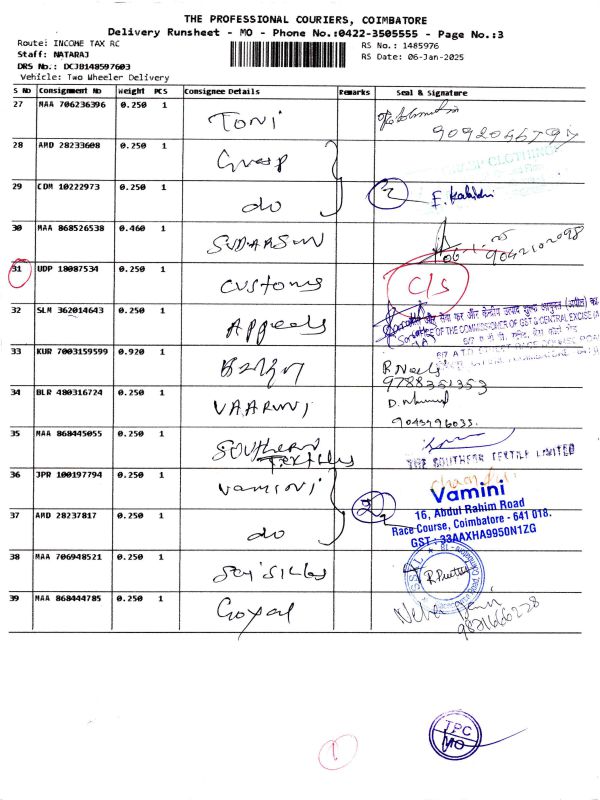 THE PROFESSIONAL COURIERS, COIMBATORE
Delivery Runsheet - MO - Phone No.:0422-3505555 - Page No.:3
Route: INCOME TAX RC
RS No.: 1485976
Staff: NATARAJ
RS Date: 06-Jan-2025
DRS No.: DCJB148597603
Vehicle: Two Wheeler Delivery
S No Consignment No Weight PCS Consignee Details Remarks Seal & Signature
27 MAA 706236396 0.250 1 TONI
28 AMD 28233608 0.250 1 Grasp
GRASP CLOTHING
29 CDM 10222973 0.250 1 do 2 E. Kalidhi
30 MAA 868526538 0.460 1 SUDARSUN 9042102098
31 UDP 18087534 0.250 1 Customs C/S
32 SLM 362014643 0.250 1 Appeals
OF THE COMMISSIONER OF GST & CENTRAL EXCISE
33 KUR 7003159599 0.920 1 R. Neela
9788351353
34 BLR 480316724 0.250 1 VAARUNI
35 MAA 868445055 0.250 1 SOUTHERN
Textiles THE SOUTHERN TEXTILE LIMITED
36 JPR 100197794 0.250 1 Vamini 2
Vamini
16, Abdul Rahim Road
Race Course, Coimbatore - 641 018.
GST : 33AAXHA9950N1ZG
37 AMD 28237817 0.250 1 do
38 MAA 706948521 0.250 1 Sai Silks
39 MAA 868444785 0.250 1 Goyal
1
TPC
MO